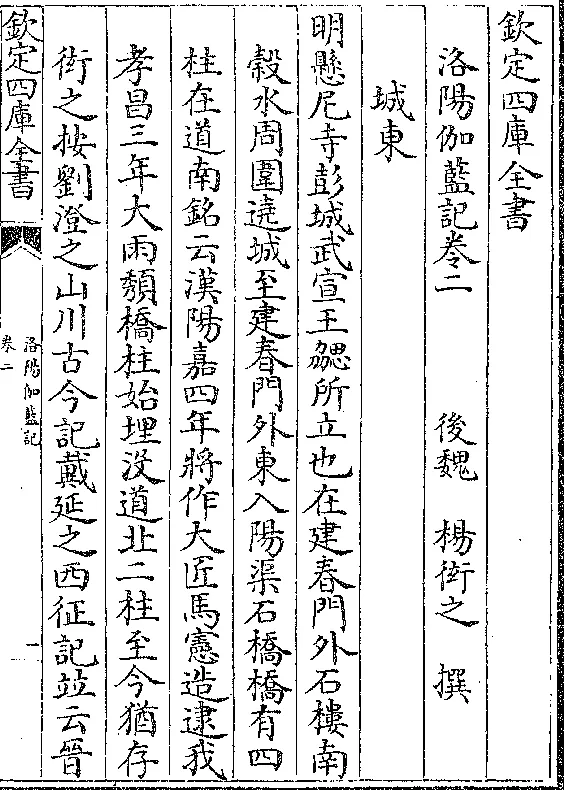 欽定四庫全書
洛陽伽藍記卷二 後魏 楊衒之 撰
城東
明懸尼寺彭城武宣王勰所立也在建春門外石樓南
榖水周圍遶城至建春門外東入陽渠石橋橋有四
柱在道南銘云漢陽嘉四年將作大匠馬憲造逮我
孝昌三年大雨頽橋柱始埋没道北二柱至今猶存
衒之按劉澄之山川古今記戴延之西征記竝云晉
欽定四庫全書
洛陽伽藍記
卷二
一